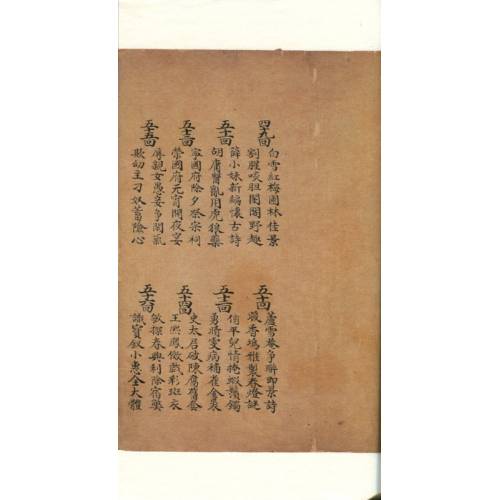 四十九回
白雪紅梅園林佳景
割腥啖膻閨閣野趣
五十回
蘆雪菴爭聯即景詩
暖香塢雅製春燈謎
五十一回
薛小妹新編懷古詩
胡庸醫亂用虎狼藥
五十二回
俏平兒情掩蝦鬚鐲
勇晴雯病補雀金裘
五十三回
寧國府除夕祭宗祠
榮國府元宵開夜宴
五十四回
史太君破陳腐舊套
王熙鳳傚戲彩斑衣
五十五回
辱親女愚妾爭閒氣
欺幼主刁奴蓄險心
五十六回
敏探春興利除宿弊
識寶釵小惠全大體